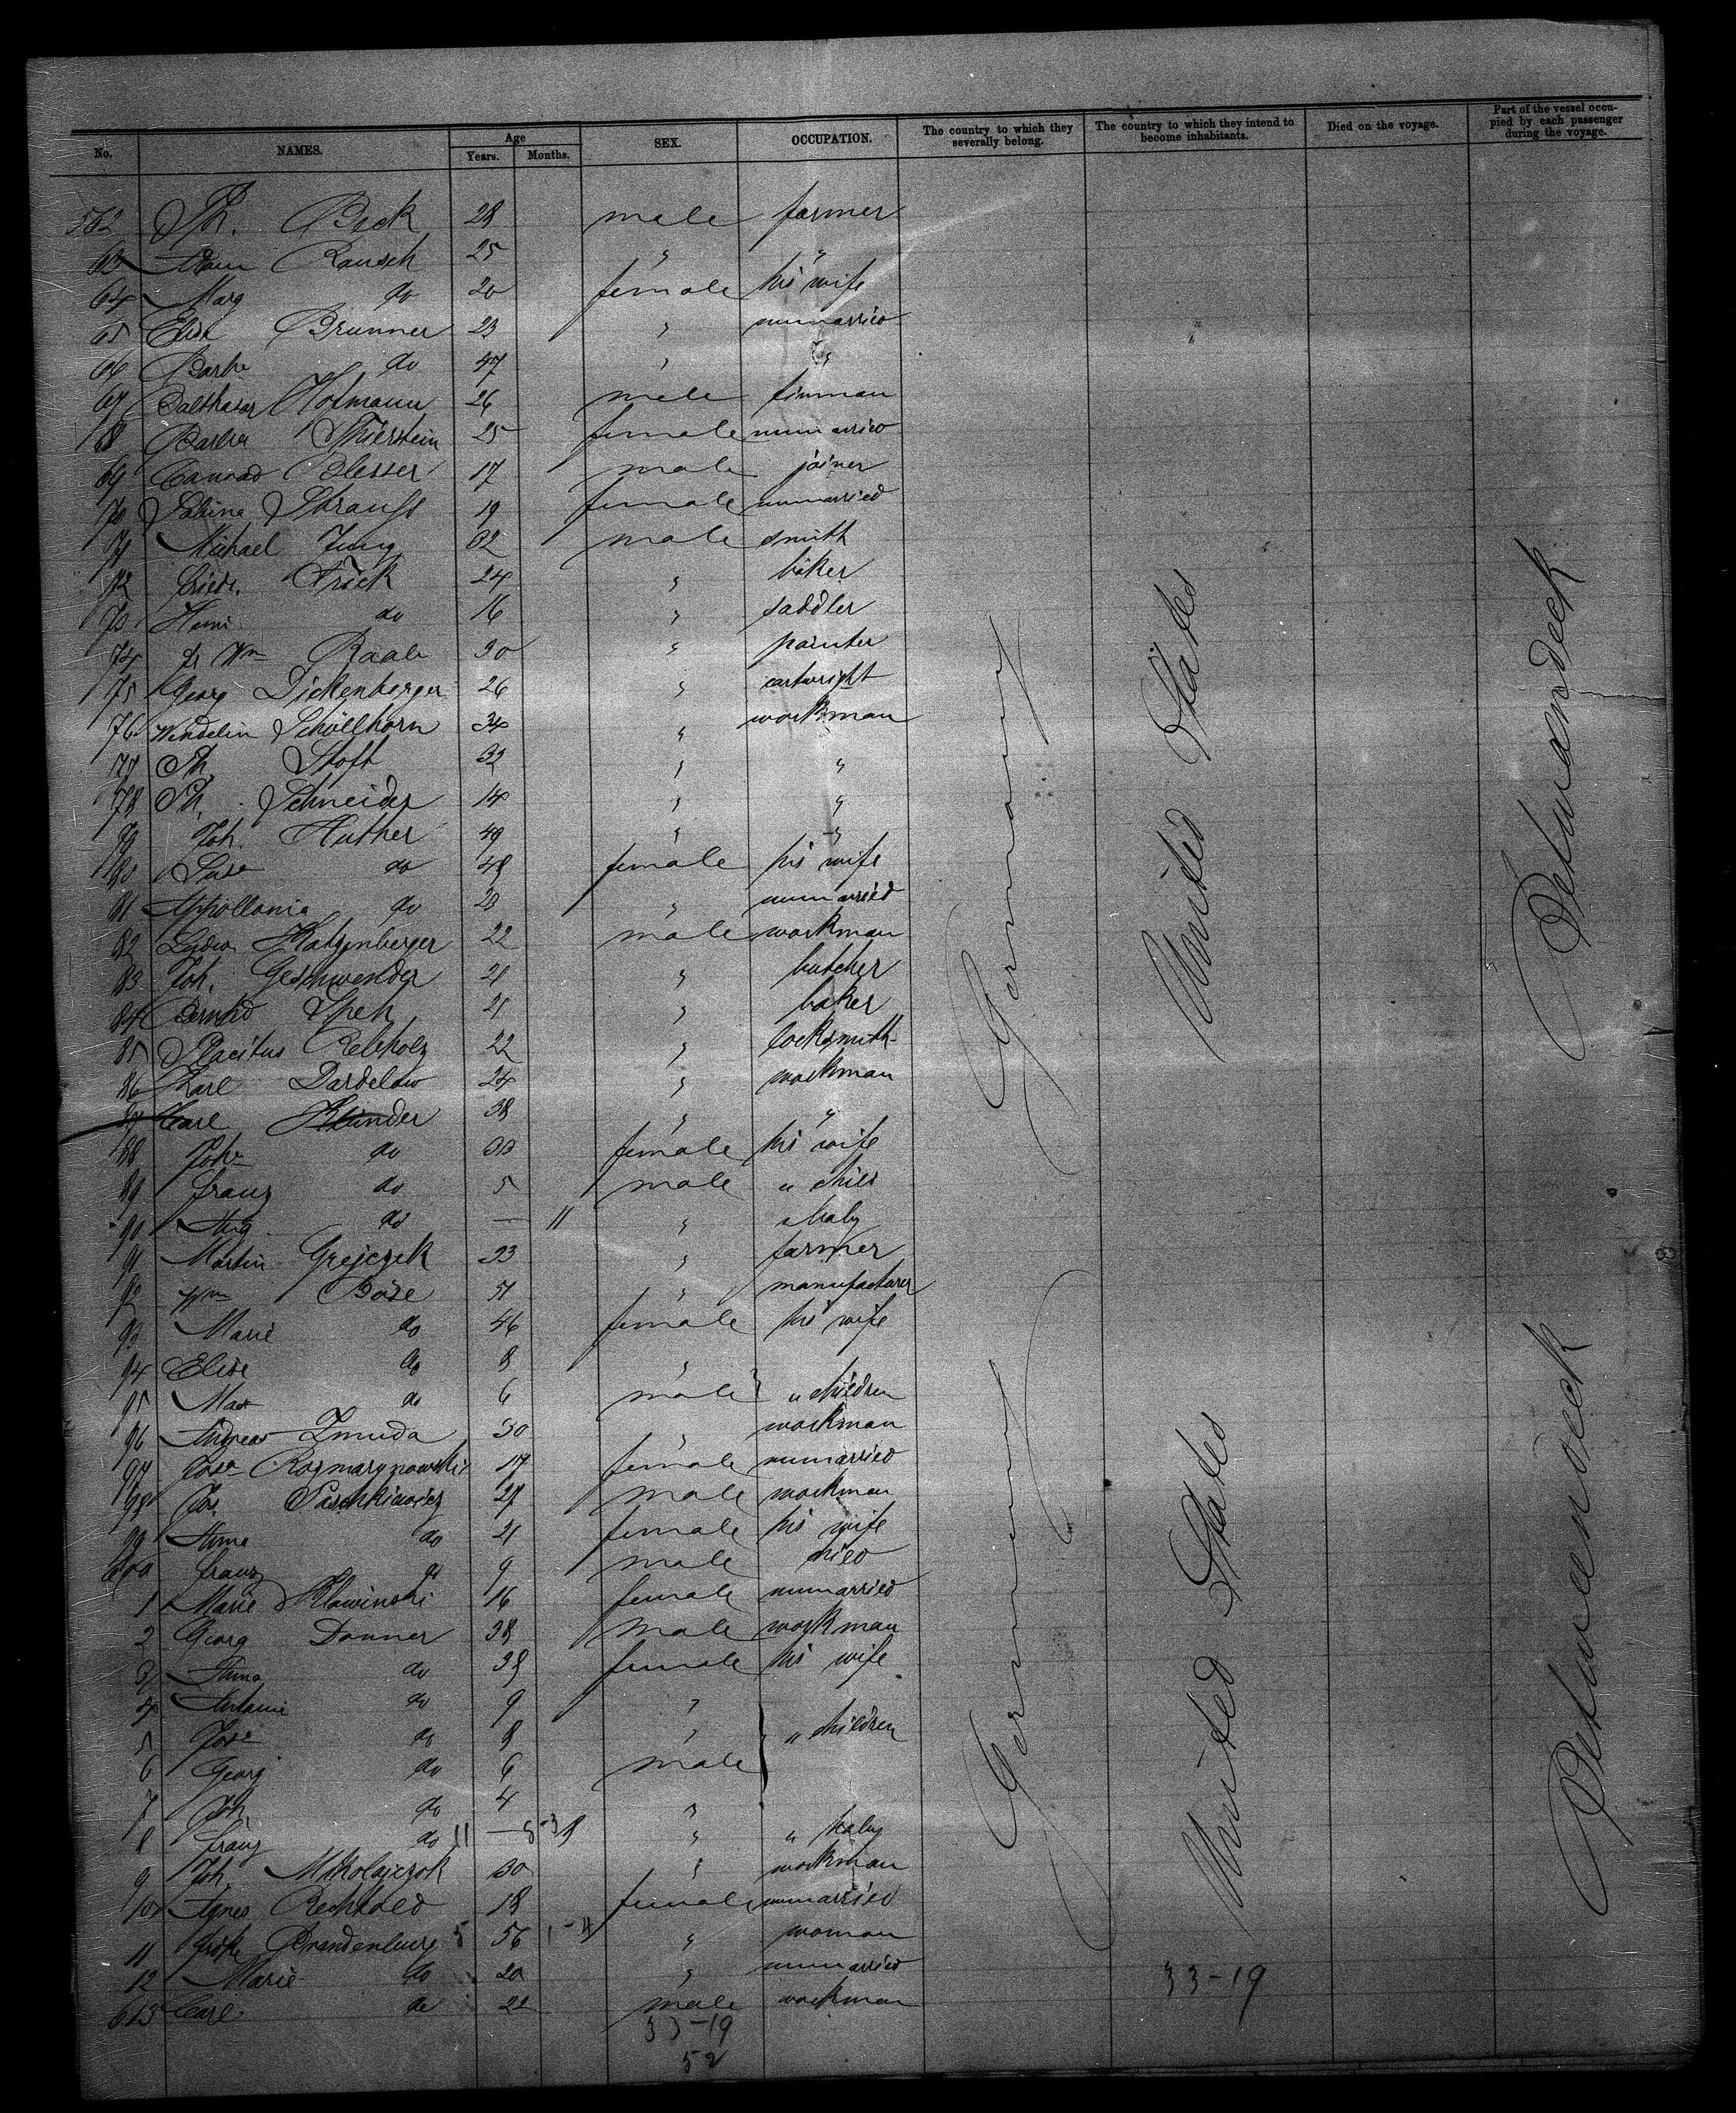 No. NAMES. Age Years. Months. SEX. OCCUPATION. The country to which they severally belong. The country to which they intend to become inhabitants. Died on the voyage. Part of the vessel occupied by each passenger during the voyage.
562 Ph. Beck 28 male farmer
63 Adam Rausch 25 " "
64 Marg do 20 female his wife
65 Elise Brunner 23 " unmarried
66 Barba do 47 " "
67 Balthasar Hofmann 26 male tinman
68 Barba Thierstein 25 female unmarried
69 Conrad Blesser 17 male joiner
70 Sabina Strauss 19 female unmarried
71 Michael Jung 32 male smith
72 Friedr. Frick 24 " baker
73 do 16 " saddler
74 Fr Wm Raab 30 " painter
75 Georg Dickenberger 26 " cartwright
76 Wendelin Schöllhorn 34 " workman
77 Ph. Stoft 32 " "
78 Ph. Schneider 14 " "
79 Joh. Huther 49 " "
80 do 48 female his wife
81 Appollonia do 20 " unmarried
82 Ludw. Katzenberger 22 male workman
83 Joh. Geschwender 21 " butcher
84 Bernhd Speh 21 " baker
85 Placitus Rebholz 22 " locksmith
86 Karl Dardelow 24 " workman
87 Carl Klinder 38 " "
88 Joha do 33 female his wife
89 Franz do 5 male " child
90 Aug. do — 11 " " baby
91 Martin Grejczek 23 " farmer
92 Wm Böse 51 " manufacturer
93 Marie do 46 female his wife
94 Elise do 8 "
95 Max do 6 male " children
96 Andreas Zmuda 30 " workman
97 Josa 17 female unmarried
98 Jos. Paschkiewicz 27 male workman
99 Anna do 21 female his wife
600 Franz do 9 male child
1 Marie Klawinski 16 female unmarried
2 Georg Donner 38 male workman
3 Anna do 38 female his wife
4 Antonie do 9 "
5 Josa do 8 " " children
6 Georg do 6 male
7 Joh. do 4 "
8 Franz do 11 — 8 " " baby
9 Joh. Mikolajczok 30 " workman
10 Agnes Rechhold 18 female unmarried
11 Brandenburg 56 " woman
12 Marie do 20 " unmarried
613 Carl do 22 male workman
Germany
United States
Betweendeck
Germany
United States
Betweendeck
33-19
33-19
52